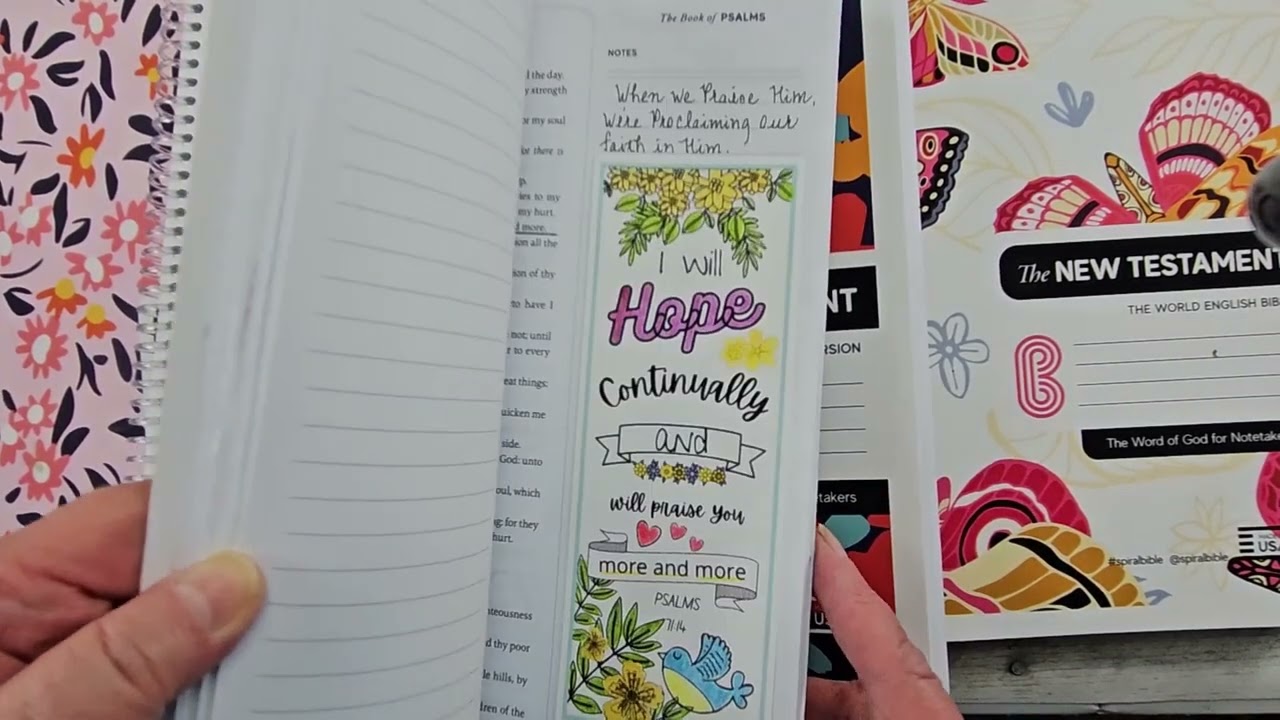 The Book of PSALMS
NOTES
When we Praise Him,
We're Proclaiming our
faith in Him.
I will
Hope
Continually
and
will praise you
more and more
PSALMS
71:14
l the day.
y strength
or my soul
for there is
ies to my
my hurt.
d more.
ion all the
sion of thy
to have I
not; until
r to every
eat things:
uicken me
side.
God: unto
oul, which
g: for they
hurt.
hteousness
d thy poor
le hills, by
dren of the
NT
RSION
takers
The NEW TESTAMENT
THE WORLD ENGLISH BIB
B
The Word of God for Notetake
#spiralbible @spiralbible
USA